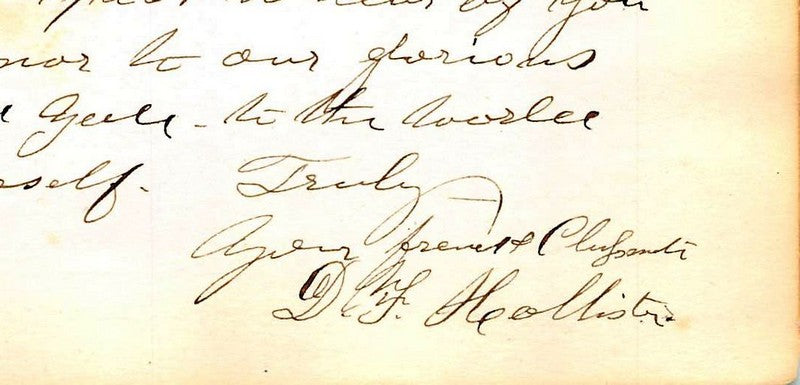 to hear of you
nor to our glorious
Yale - to the world
self. Truly
Your friend & Classmate
D. F. Hollister